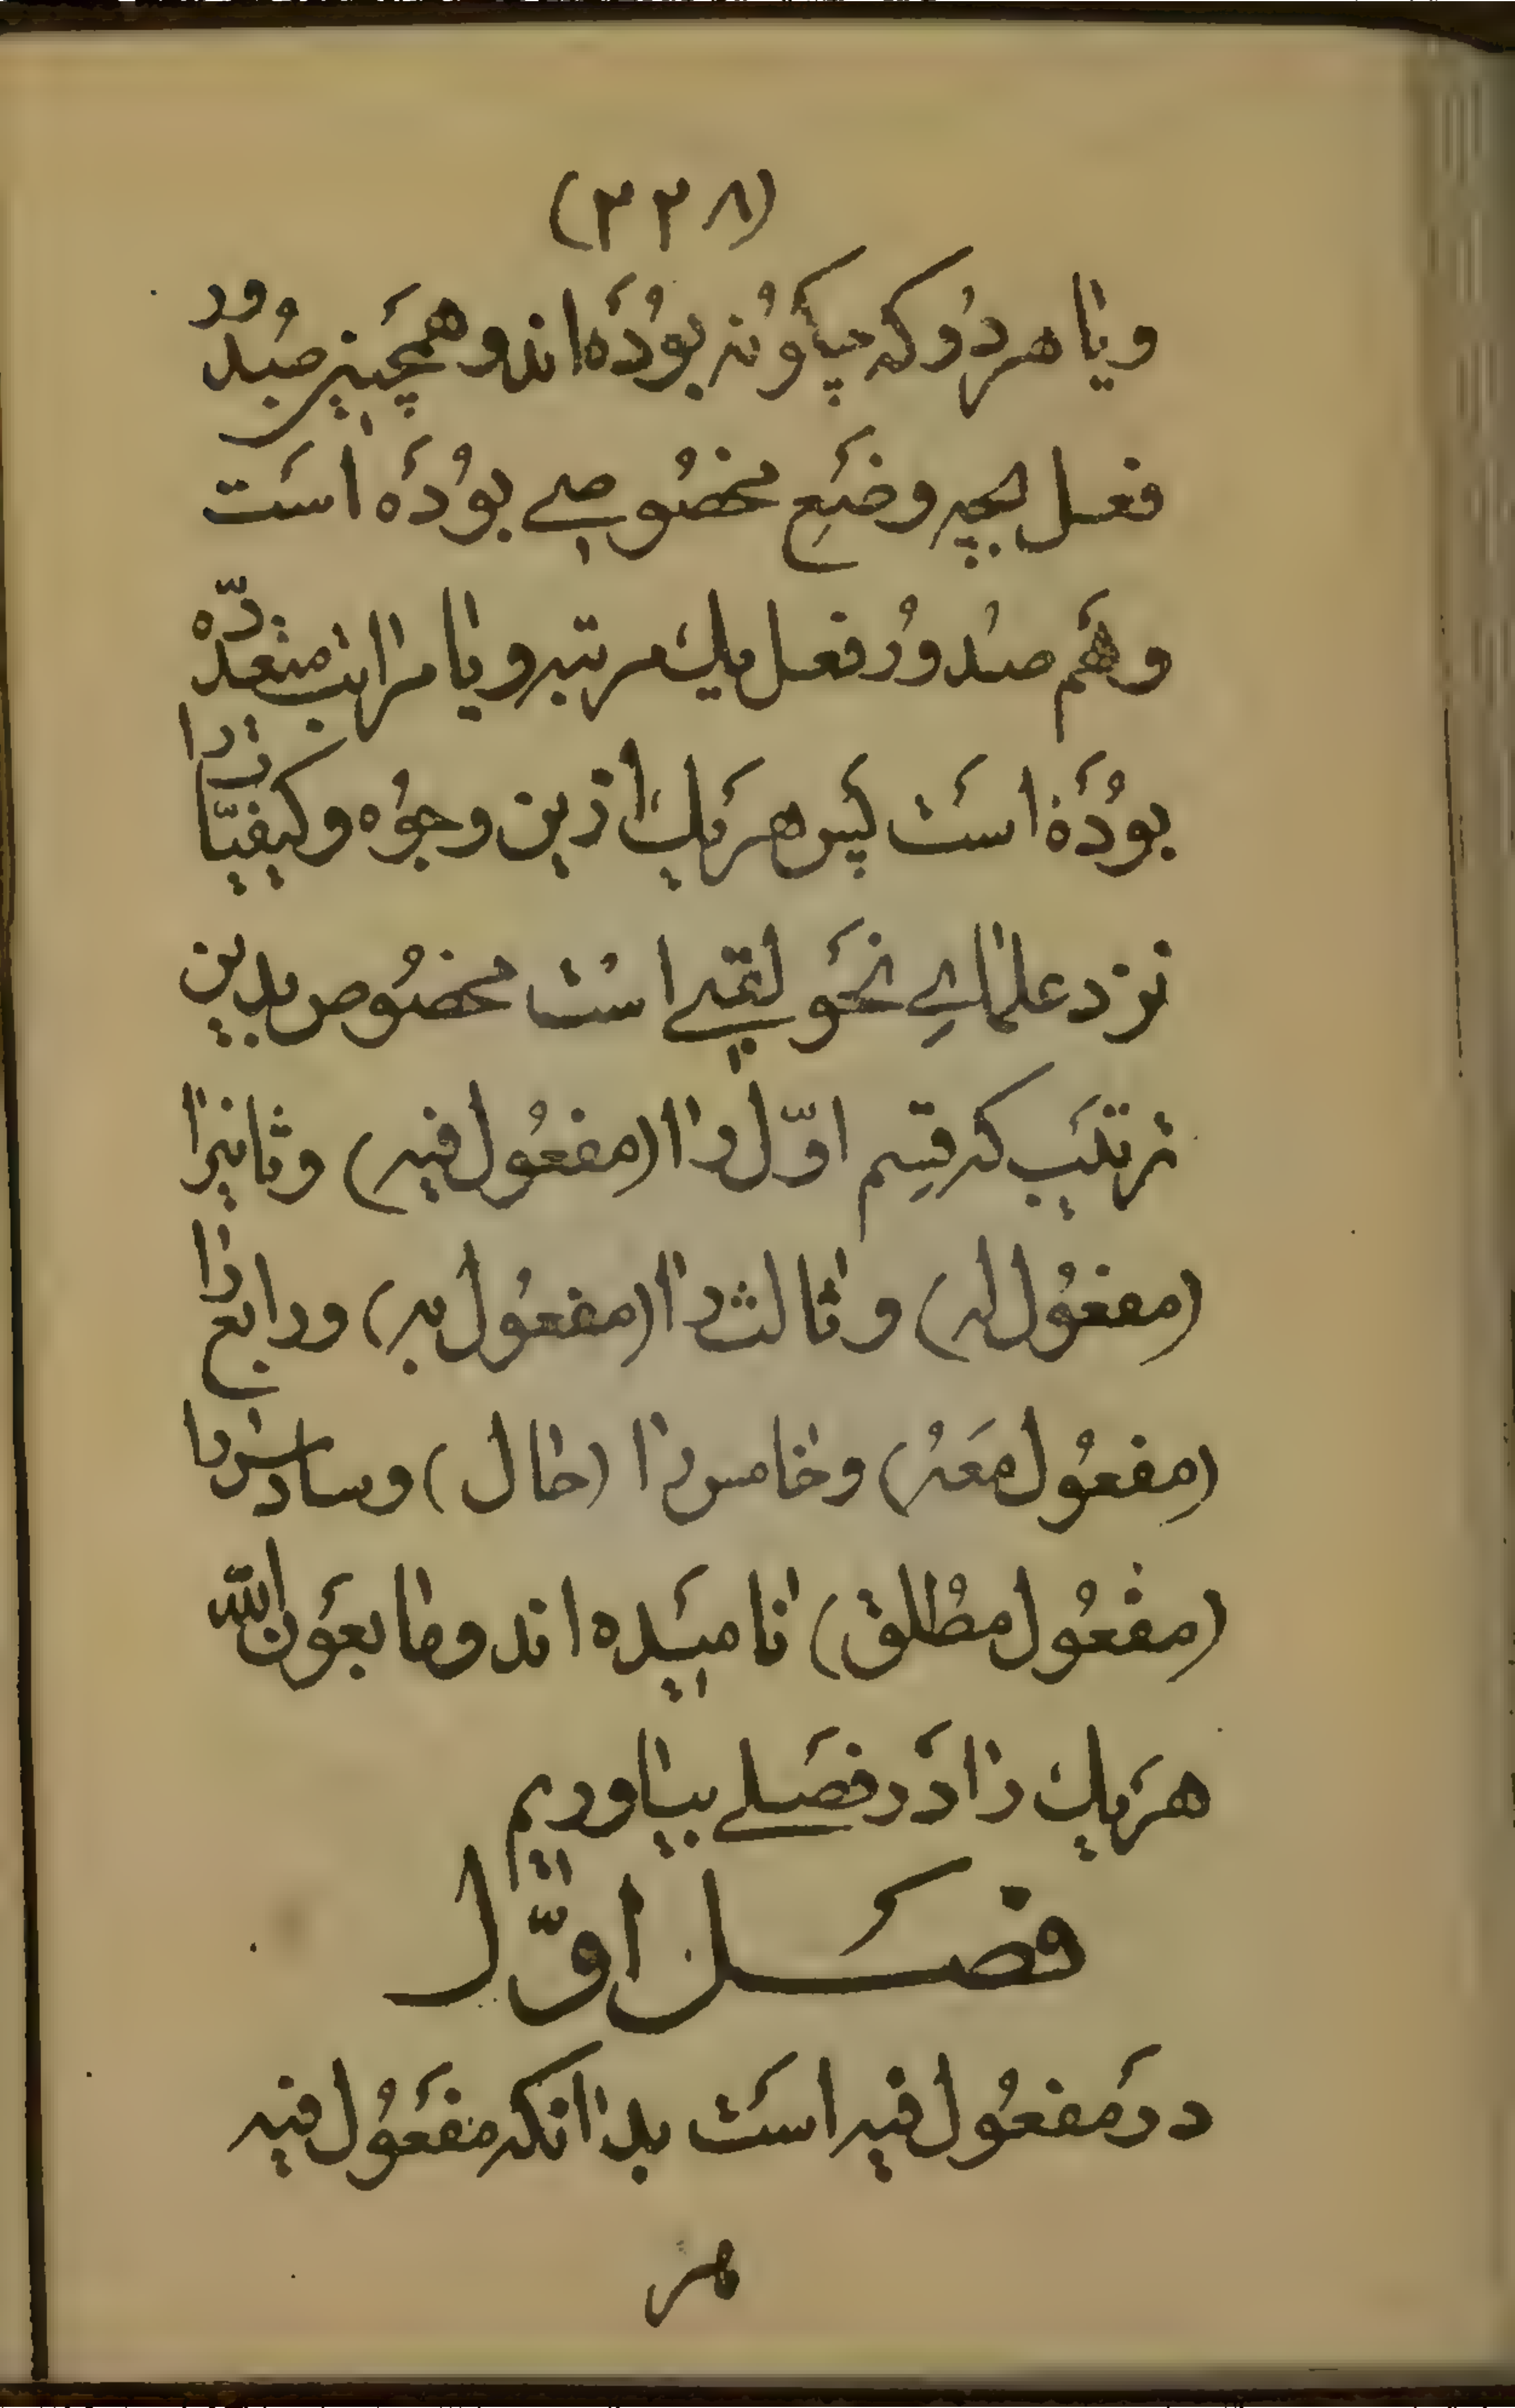 (۳۳۸)
ویا هر دُو که چگوُنه بوُدَه‌اند و همچَنین صُدُور
فعل بچه وضَعِ مخصُوصی بوُدَه است
و هَم صُدوُر فعل یك مرتبه و یا مراتب متعدّده
بوُدَه است پَس هر یَك ازین وجوُه و کیفیّات را
نزد علمایِ نَحَو لقبی است مخصُوص بدین
ترتیَب که قِسِم اوّل را (مفعُول فیه) و ثانیرا
(مفعُول له) و ثالث را (مفعُول به) و رابع را
(مفعُول مَعَهُ) و خامس را (حال) و سادس را
(مفعُول مطُلق) نامیَده‌اند و ما بعَون الله
هرَ یك را دَر فصَلی بیاوریم
فصَل اوَّل
در مفعُول فیه است بدانکه مفعَوُل فیه
هر